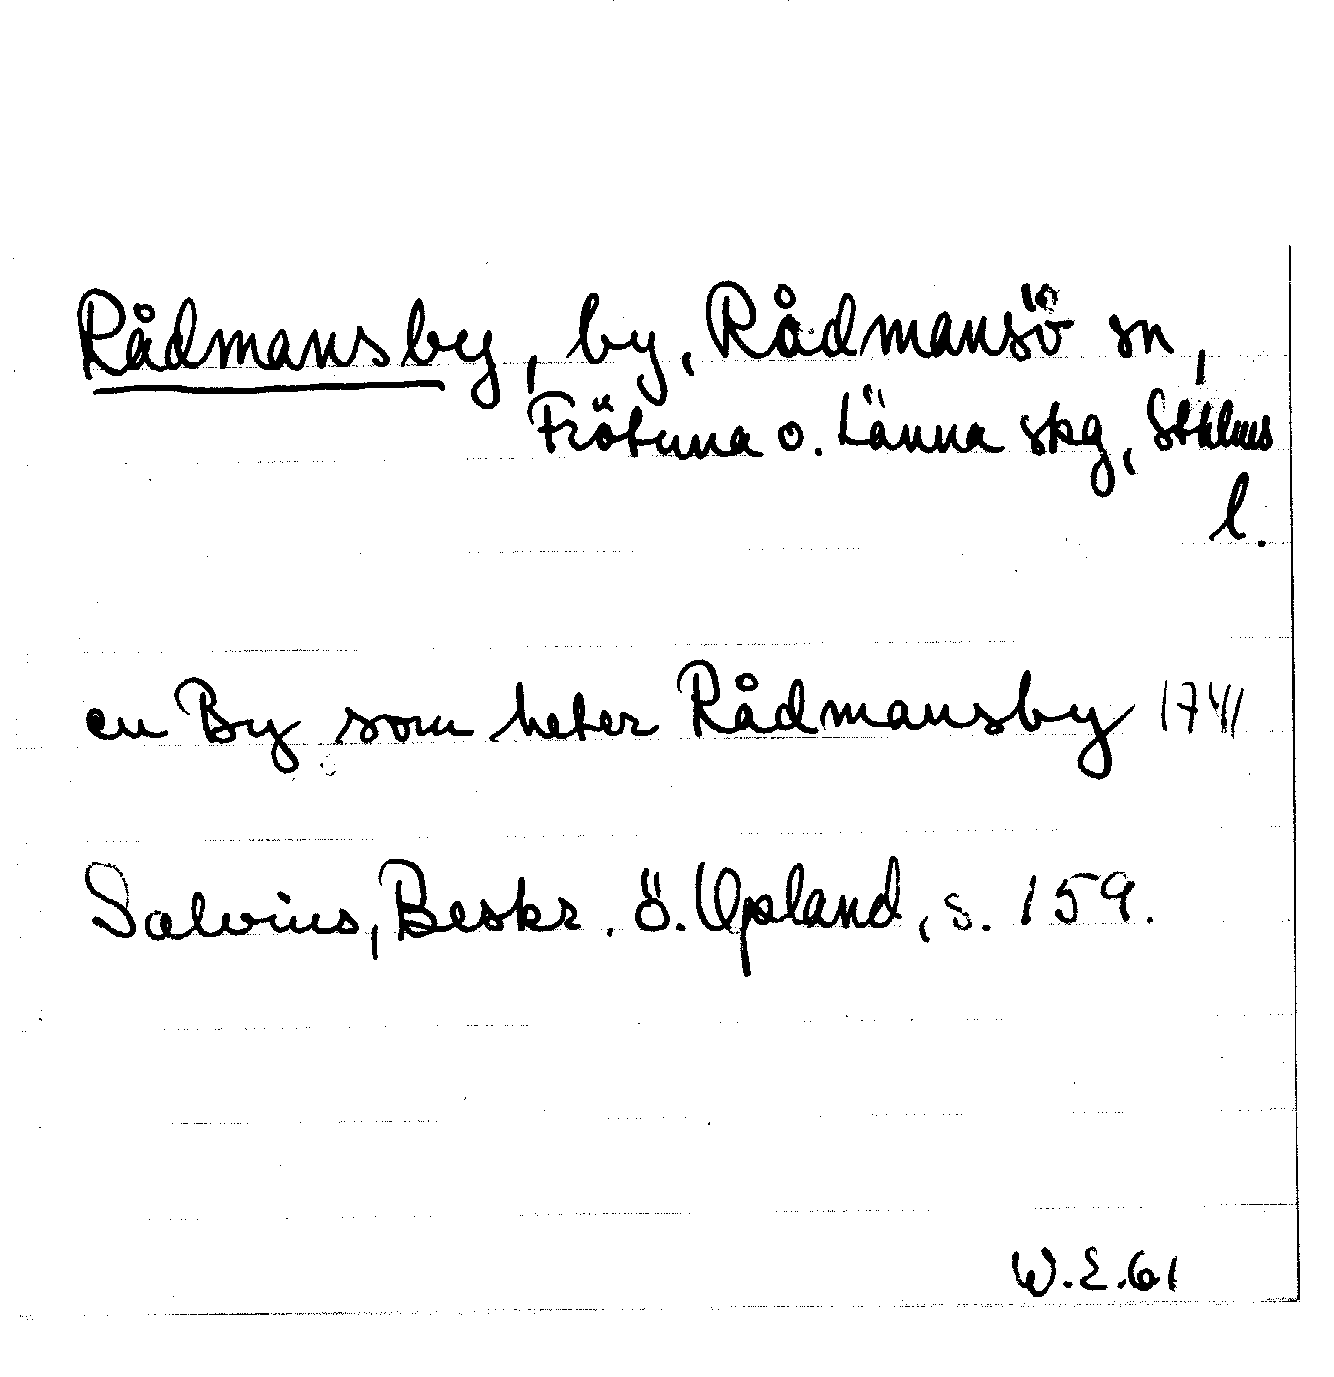 Rådmansby, by, Rådmansö sn,
Frötuna o. Länna skg, Sthlms
l.
en By som heter Rådmansby 1741
Salvius, Beskr. ö. Upland, s. 159.
W.E.61